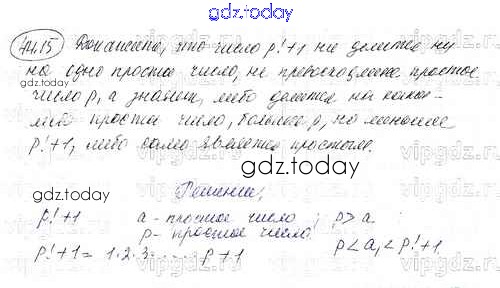 gdz.today
44.15 Докажите, что число p!+1 не делится ни
на одно простое число, не превосходящее простое
gdz.today
число p, а значит, либо делится на какое-
либо простое число, большее p, но меньшее
p!+1, либо само является простым.
gdz.today
Решение:
p!+1 a - простое число ; p > a
p - простое число.
p!+1 = 1·2·3·.....·p+1 p < a₁ < p!+1
gdz.today